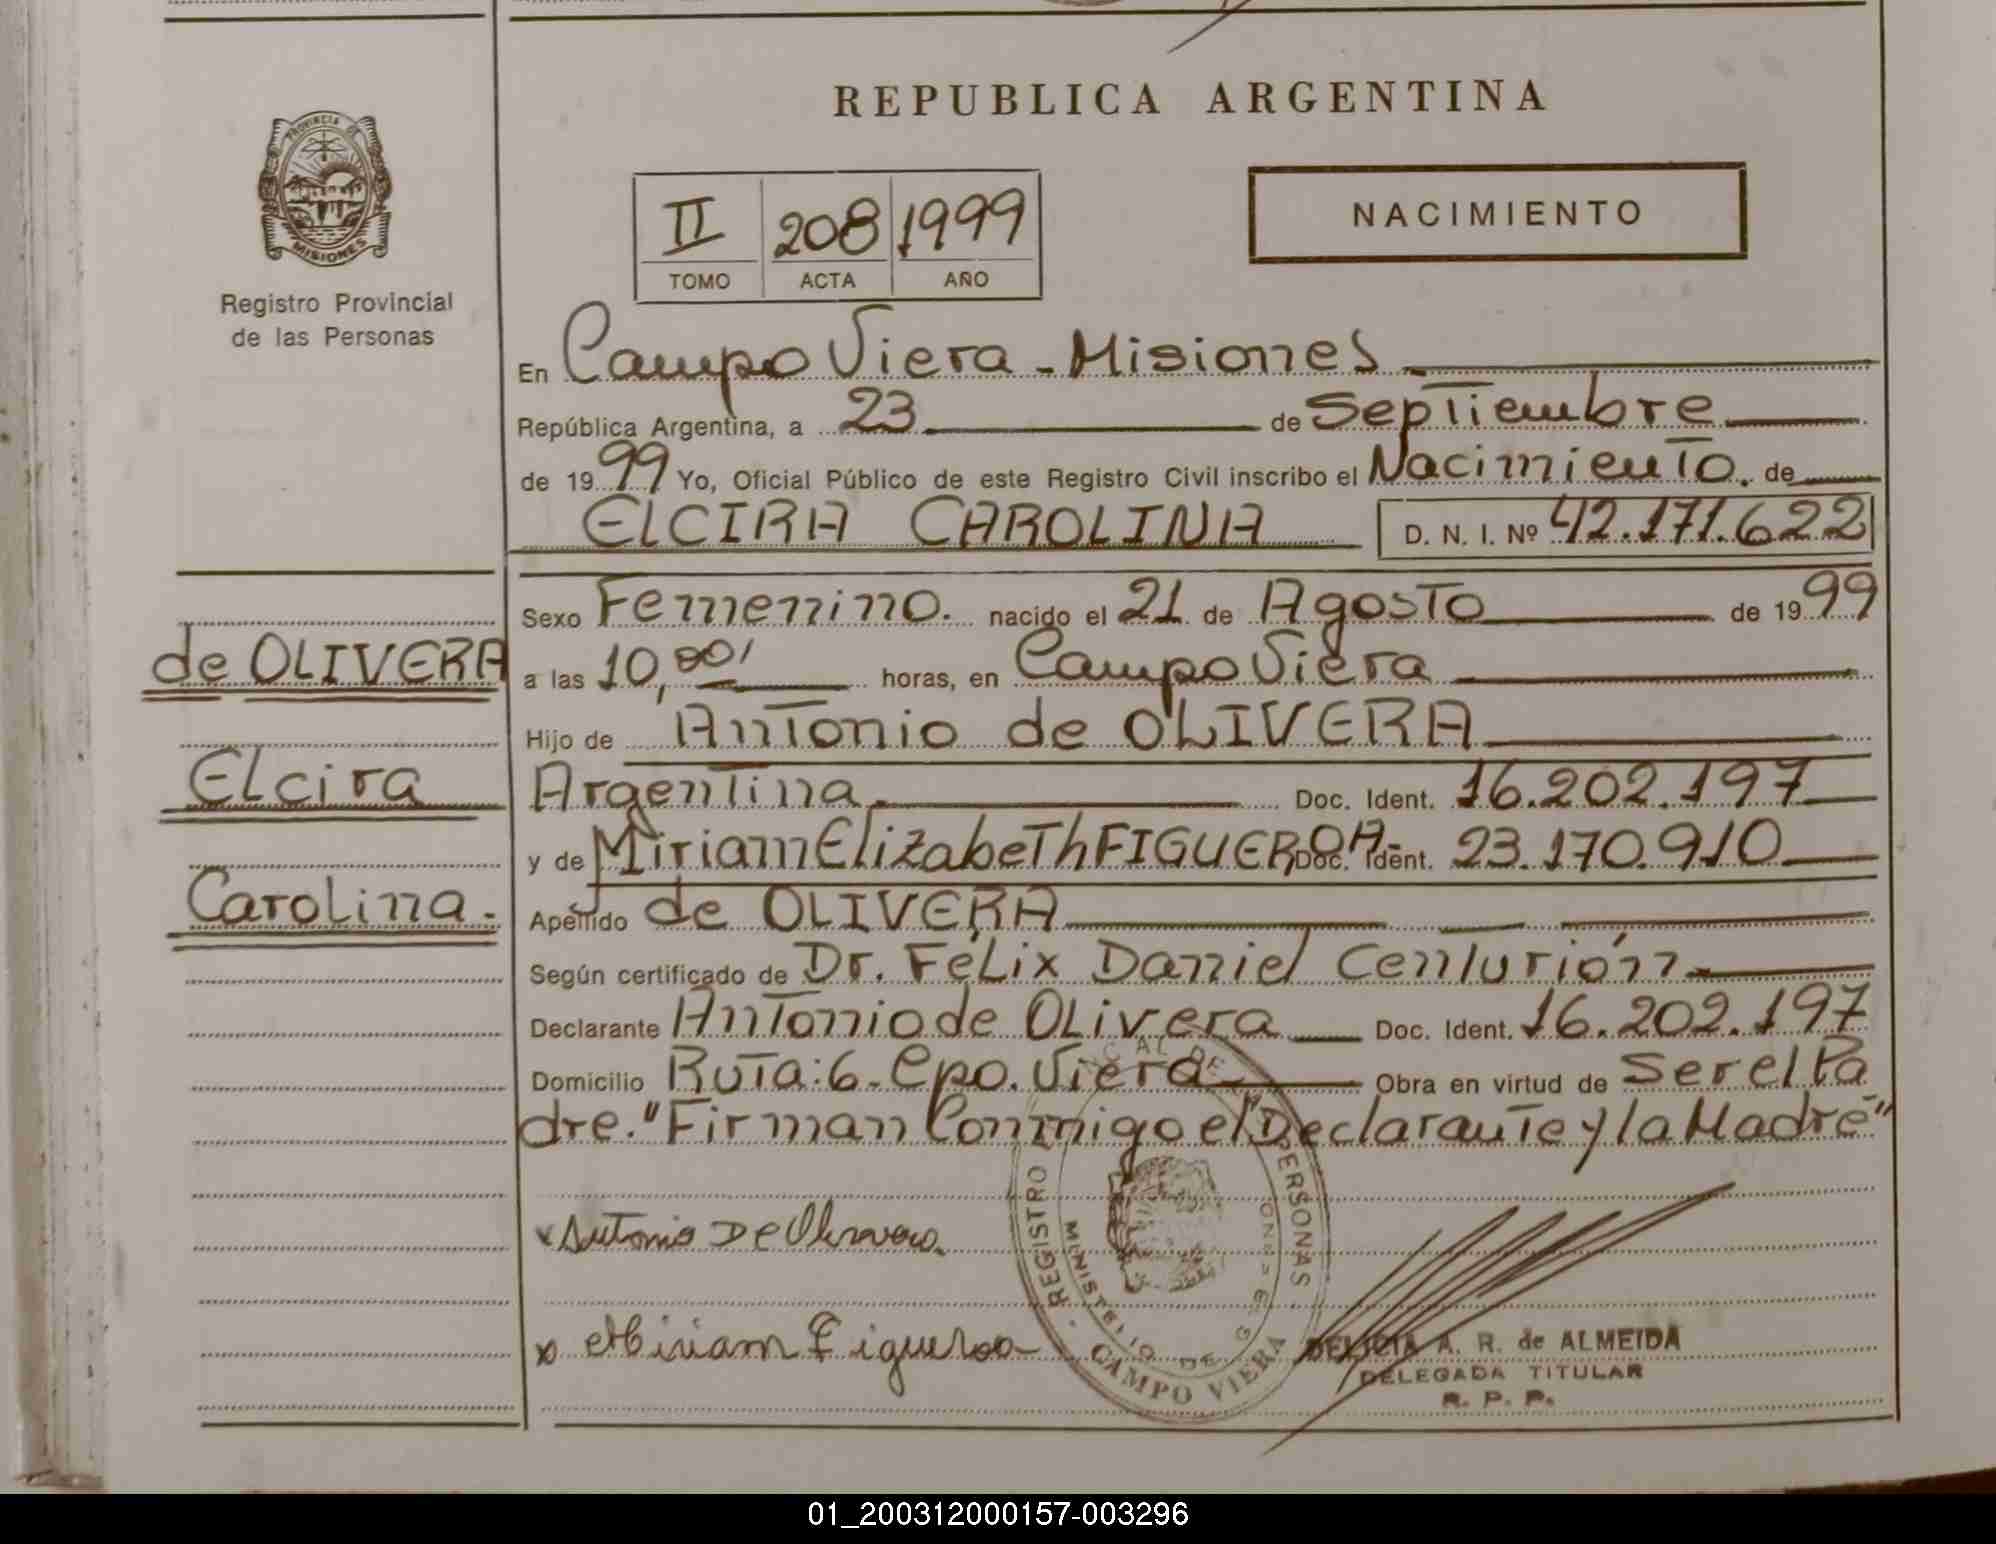 REPUBLICA ARGENTINA
PROVINCIA DE
MISIONES
Registro Provincial
de las Personas
II 208 1999
TOMO ACTA AÑO
NACIMIENTO
En Campo Viera - Misiones
República Argentina, a 23 de Septiembre
de 1999 Yo, Oficial Público de este Registro Civil inscribo el Nacimiento. de
ELCIRA CAROLINA D. N. I. Nº 42.171.622
Sexo Femenino. nacido el 21 de Agosto de 1999
de OLIVERA
a las 10,00' horas, en Campo Viera
Hijo de Antonio de OLIVERA
Elcira
Argentina. Doc. Ident. 16.202.197
y de Miriam Elizabeth FIGUEROA- Doc. Ident. 23.170.910
Carolina.
Apellido de OLIVERA
Según certificado de Dr. Félix Daniel Centurión
Declarante Antonio de Olivera Doc. Ident. 16.202.197
Domicilio Ruta: 6- Cpo. Viera Obra en virtud de Ser el Pa
dre. "Firman Conmigo el Declarante y la Madre"
x Antonio De Olivera
x Miriam Figueroa
REGISTRO PERSONAS
MINISTERIO DE
CAMPO VIERA
DELICIA A. R. de ALMEIDA
DELEGADA TITULAR
R. P. P.
01_200312000157-003296